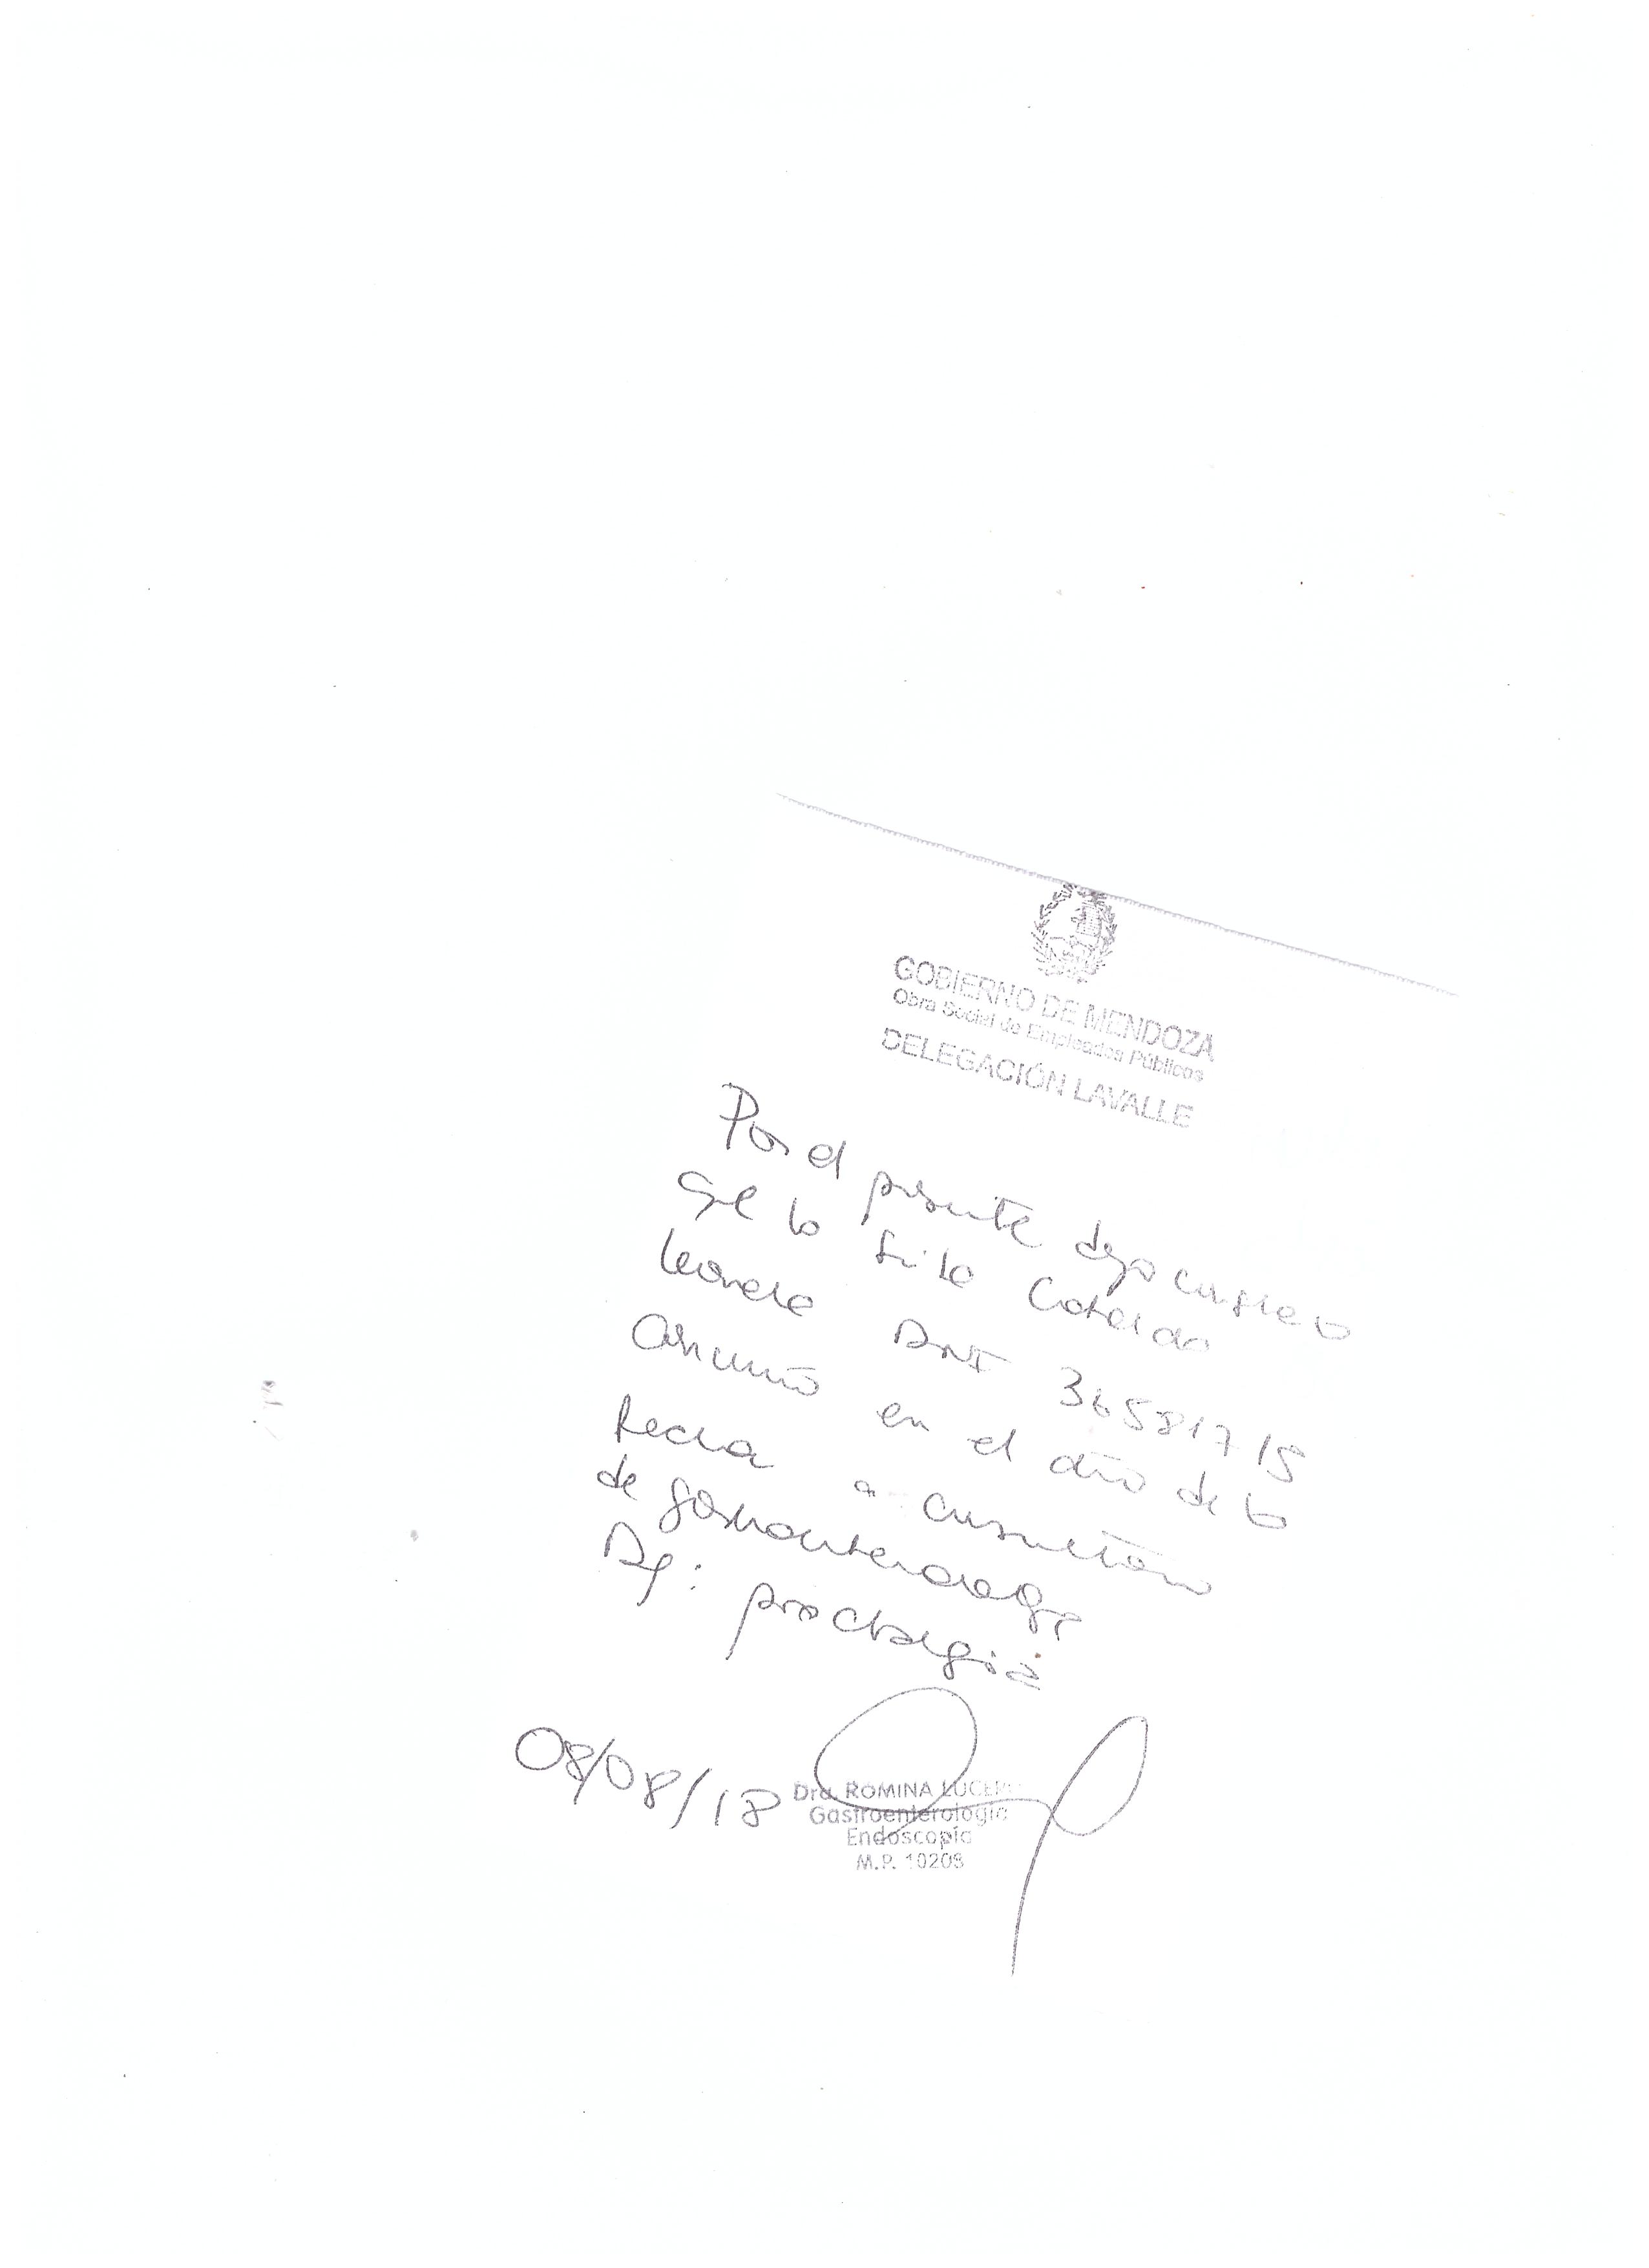 GOBIERNO DE MENDOZA
Obra Social de Empleados Públicos
DELEGACIÓN LAVALLE
Por el presente dejo constancia
que la Srita
DNI 36581715
en el día de la
fecha a consultorio
de gastroenterología
Dg: proctalgia
08/08/18
Dra. ROMINA LUCERO
Gastroenterología
Endoscopía
M.P. 10208